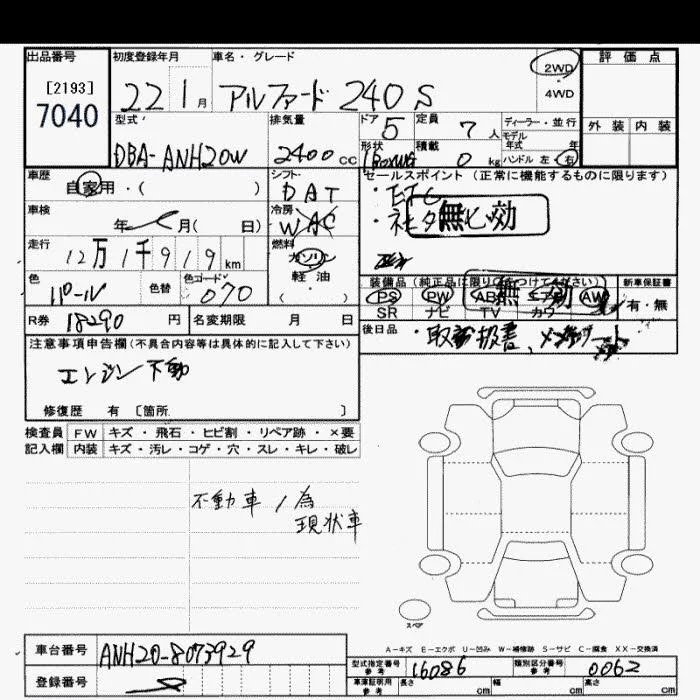 出品番号
[2193]
7040
初度登録年月
22 1 月
車名・グレード
アルファード 240 S
2WD
4WD
評価点
外装 内装
型式
DBA-ANH20W
排気量
2400 cc
ドア
5
形状
定員
7 人
積載
0 kg
ディーラー・並行
モデル年式 年
ハンドル 左・右
車歴
自家用・( )
シフト
DAT
セールスポイント (正常に機能するものに限ります)
・ETC
無効
車検
年 月( 日)
冷房
WAC
走行
12万1千919 km
燃料
ガソリン
軽油
( ・ )
色
パール
色替
色コード
070
装備品 (純正品に限り○をつけてください)
無効
PS PW AB エアB AW
SR ナビ TV カワ
新車保証書
有・無
R券
18290 円
名変期限 月 日
後日品
・取説
注意事項申告欄(不具合内容等は具体的に記入して下さい)
エンジン不動
修復歴 有 [箇所 ]
検査員 FW キズ・飛石・ヒビ割・リペア跡・×要
記入欄 内装 キズ・汚レ・コゲ・穴・スレ・キレ・破レ
不動車ノ為
現状車
スペア
A-キズ E-エクボ U-凹み W-補修跡 S-サビ C-腐食 XX-交換済
車台番号
ANH20-8073929
登録番号
型式指定番号
参考
16086
類別区分番号
参考
0062
車庫証明用
参考
長さ cm
幅 cm
高さ cm